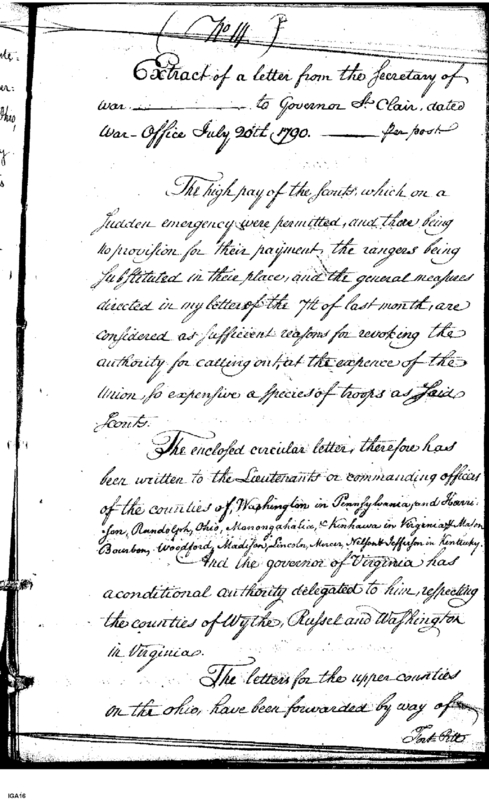 (No 14.)
Extract of a letter from the Secretary of
war to Governor St. Clair, dated
War-Office July 20th, 1790. per post
The high pay of the Scouts, which on a
sudden emergency were permitted, and there being
no provision for their payment, the rangers being
substituted in their place, and the general measures
directed in my letter of the 7th of last month, are
considered as sufficient reasons for revoking the
authority for calling out, at the expence of the
Union, so expensive a species of troops as said
Scouts.
The enclosed circular letter, therefore has
been written to the Lieutenants or commanding officers
of the counties of, Washington in Pennsylvania, and Harri-
son, Randolph, Ohio, Manongahalia, & Kinhawa in Virginia, & Mason
Bourbon, Woodford, Madison, Lincoln, Mercer, Nelson & Jefferson in Kentucky.
And the governor of Virginia has
a conditional authority delegated to him, respecting
the counties of Wythe, Russel and Washington
in Virginia.
The letters for the upper counties
on the ohio, have been forwarded by way of
Fort Pitt
IGA16